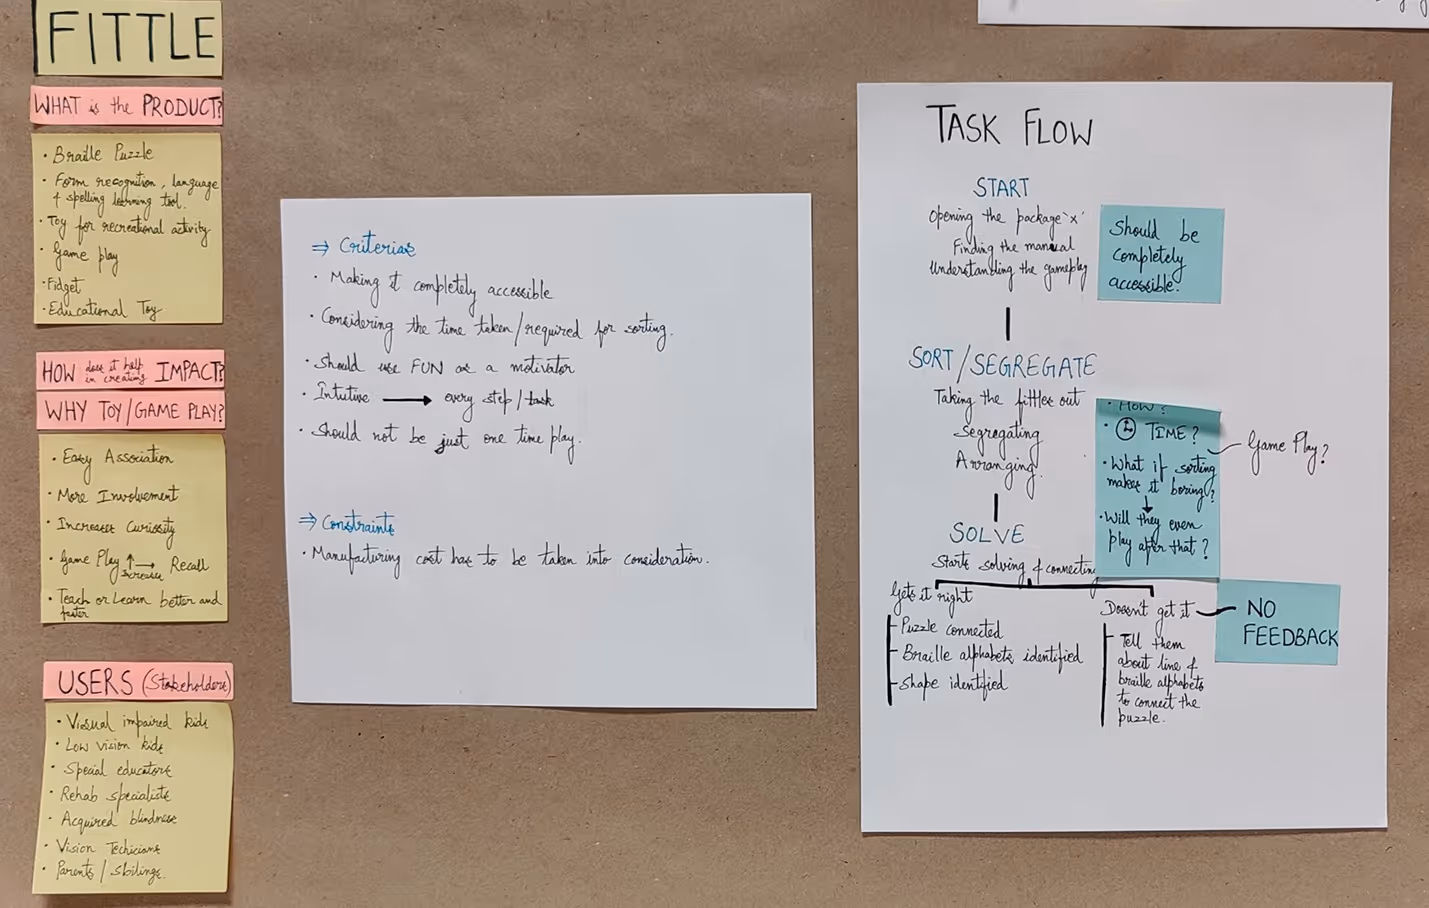 FITTLE
WHAT is the PRODUCT?
• Braille Puzzle
• Form recognition, language
& spelling learning tool.
• Toy for recreational activity
• Game play
• Fidget
• Educational Toy
HOW does it help
in creating IMPACT?
WHY TOY/GAME PLAY?
• Easy Association
• More Involvement
• Increases Curiosity
• Game Play ↑ → Recall
increases
• Teach or Learn better and
faster
USERS (Stakeholders)
• Visual impaired kids
• Low vision kids
• Special educators
• Rehab specialists
• Acquired blindness
• Vision Techicians
• Parents / Sbilings.
⇒ Criterias
• Making it completely accessible
• Considering the time taken/required for sorting.
• Should use FUN as a motivator
• Intutive → every step/task
• Should not be just one time play.
⇒ Constraints
• Manufacturing cost has to be taken into consideration.
TASK FLOW
START
Opening the package 'x'
Finding the manual
Understanding the gameplay
Should be
completely
accessible.
SORT/SEGREGATE
Taking the fittles out
Segregating
Arranging.
• HOW?
• TIME?
• What if sorting
makes it boring?
↓
• Will they even
play after that?
Game Play?
SOLVE
Starts solving & connecting
Gets it right
Puzzle connected
Braille alphabets identified
Shape identified
Doesn't get it
Tell them
about line &
braille alphabets
to connect the
puzzle.
NO
FEEDBACK